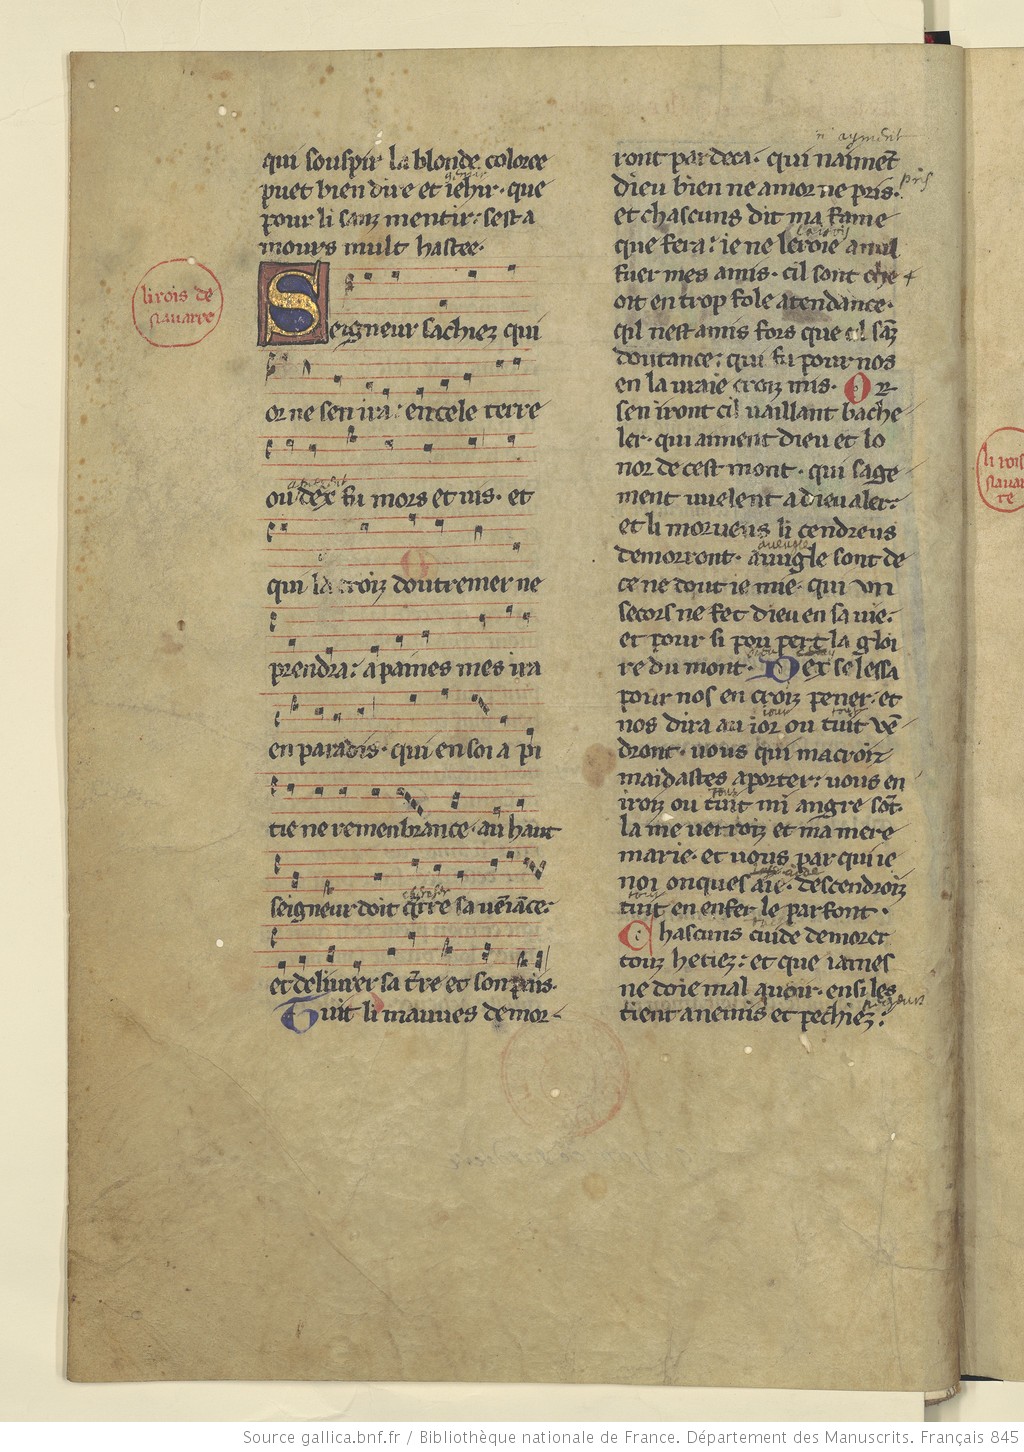 qui souspir la blonde coloree
puet bien dire et iehir · que
pour li sanz mentir : sest a
mours mult hastee ·
li rois de
nauarre
Seigneur sachiez qui
or ne sen ira : en cele terre
ou dex fu mors et uis · et
qui la croiz doutremer ne
prendra : a paines mes ira
en paradis · qui en soi a pi
tie ne remenbrance · au haut
seigneur doit qrre sa uēiāce :
et deliurer sa t̄re et son païs ·
Tuit li mauues demor-
ront par deca · qui naimēt
dieu bien ne amor ne pris ·
et chascuns dit ma fame
que fera : ie ne leroie a nul
fuer mes amis · cil sont che
oit en trop fole atendance ·
qil nest amis fors que cil sāz
doutance : qui fu pour nos
en la uraie croiz mis · Or
sen iront cil uaillant bache
ler · qui aiment dieu et lo
nor de cest mont · qui sage
ment uuelent a dieu aler :
et li morueus li cendreus
demorront · auugle sont de
ce ne dout ie mie · qui vn
secors ne fet dieu en sa uie :
et pour si pou pert la gloi
re du mont · Dex se lessa
pour nos en croiz pener · et
nos dira au ior ou tuit vē
dront · uous qui ma croiz
maidastes a porter : uous en
iroiz ou tuit mi angre sōt ·
la me uerroiz et ma mere
marie · et uous par qui ie
noi onques aie · descendroiz
tuit en enfer le parfont ·
Chascuns cuide demorer
touz hetiez : et que iames
ne doie mal auoir · ensi les
tient anemis et pechiez :
li rois
nauar
re
Source gallica.bnf.fr / Bibliothèque nationale de France. Département des Manuscrits. Français 845